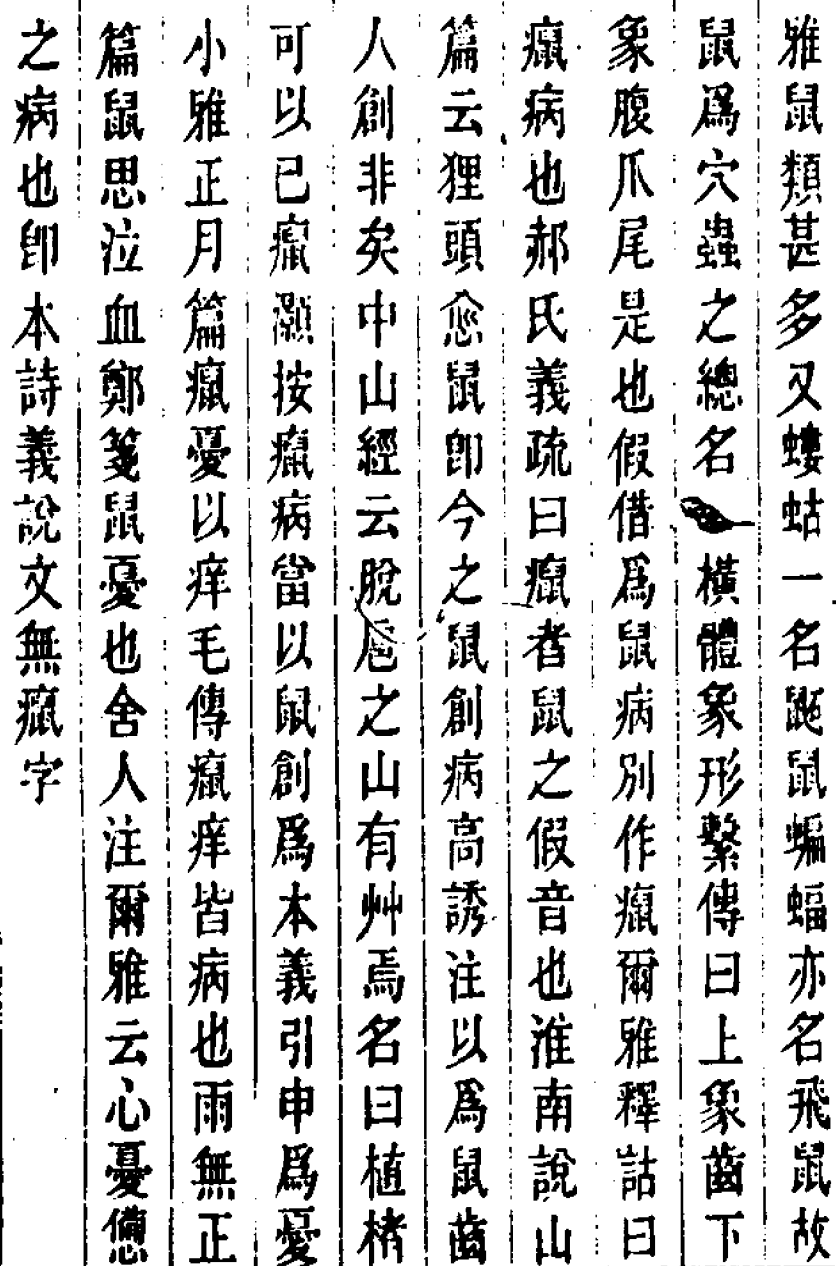 雅鼠類甚多又螻蛄一名鼫鼠蝙蝠亦名飛鼠故
鼠爲穴蟲之總名橫體象形繫傳曰上象齒下
象腹爪尾是也假借爲鼠病別作癙爾雅釋詁曰
癙病也郝氏義疏曰癙者鼠之假音也淮南說山
篇云狸頭愈鼠卽今之鼠創病高誘注以爲鼠齒
人創非矣中山經云脫扈之山有艸焉名曰植楮
可以已癙灝按癙病當以鼠創爲本義引申爲憂
小雅正月篇癙憂以痒毛傳癙痒皆病也雨無正
篇鼠思泣血鄭箋鼠憂也舍人注爾雅云心憂憊
之病也卽本詩義說文無癙字